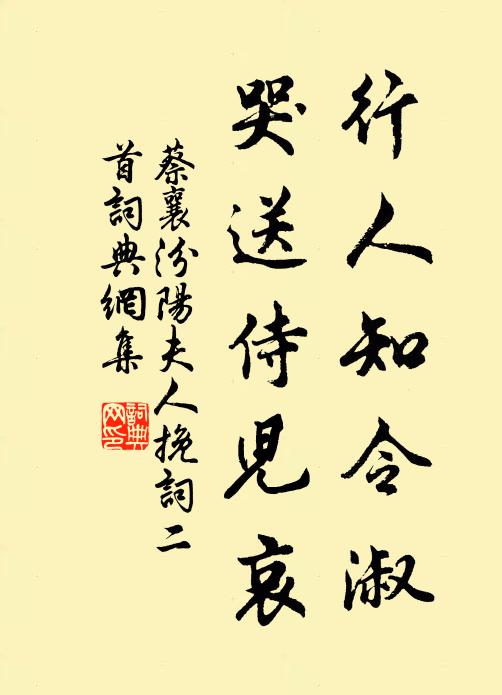 行人知令淑
哭送侍兒哀
蔡襄汾陽夫人挽詞二
首詞典網集
詞典
网印